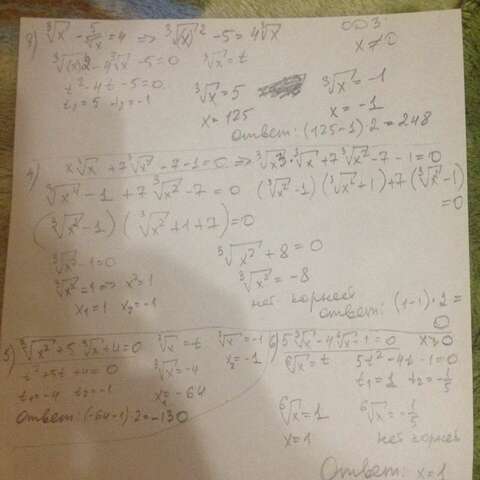 3) ∛x - 5/∛x = 4 => ∛(x)² - 5 = 4∛x
ОДЗ:
x ≠ 0
∛(x)² - 4∛x - 5 = 0 ∛x = t
t² - 4t - 5 = 0
t₁ = 5 t₂ = -1
∛x = 5 ∛x = -1
x = 125 x = -1
Ответ: (125-1)·2 = 248
4) x∛x + 7∛x² - 7 - 1 = 0 => ∛x³·∛x + 7∛x² - 7 - 1 = 0
∛x⁴ - 1 + 7∛x² - 7 = 0 (∛x² - 1)(∛x² + 1) + 7(∛x² - 1) = 0
(∛x² - 1)(∛x² + 1 + 7) = 0
∛x² - 1 = 0 ∛x² + 8 = 0
∛x² = 1 => x² = 1 ∛x² = -8
x₁ = 1 x₂ = -1 нет корней
Ответ: (1-1)·2 = 0
5) ∛x² + 5∛x + 4 = 0 ∛x = t ∛x = -1
t² + 5t + 4 = 0 ∛x = -4 x₂ = -1
t₁ = -4 t₂ = -1 x₁ = -64
Ответ: (-64-1)·2 = -130
6) 5∛x - 4⁶√x - 1 = 0 x ≥ 0
⁶√x = t 5t² - 4t - 1 = 0
t₁ = 1 t₂ = -1/5
⁶√x = 1 ⁶√x = -1/5
x = 1 нет корней
Ответ: x = 1